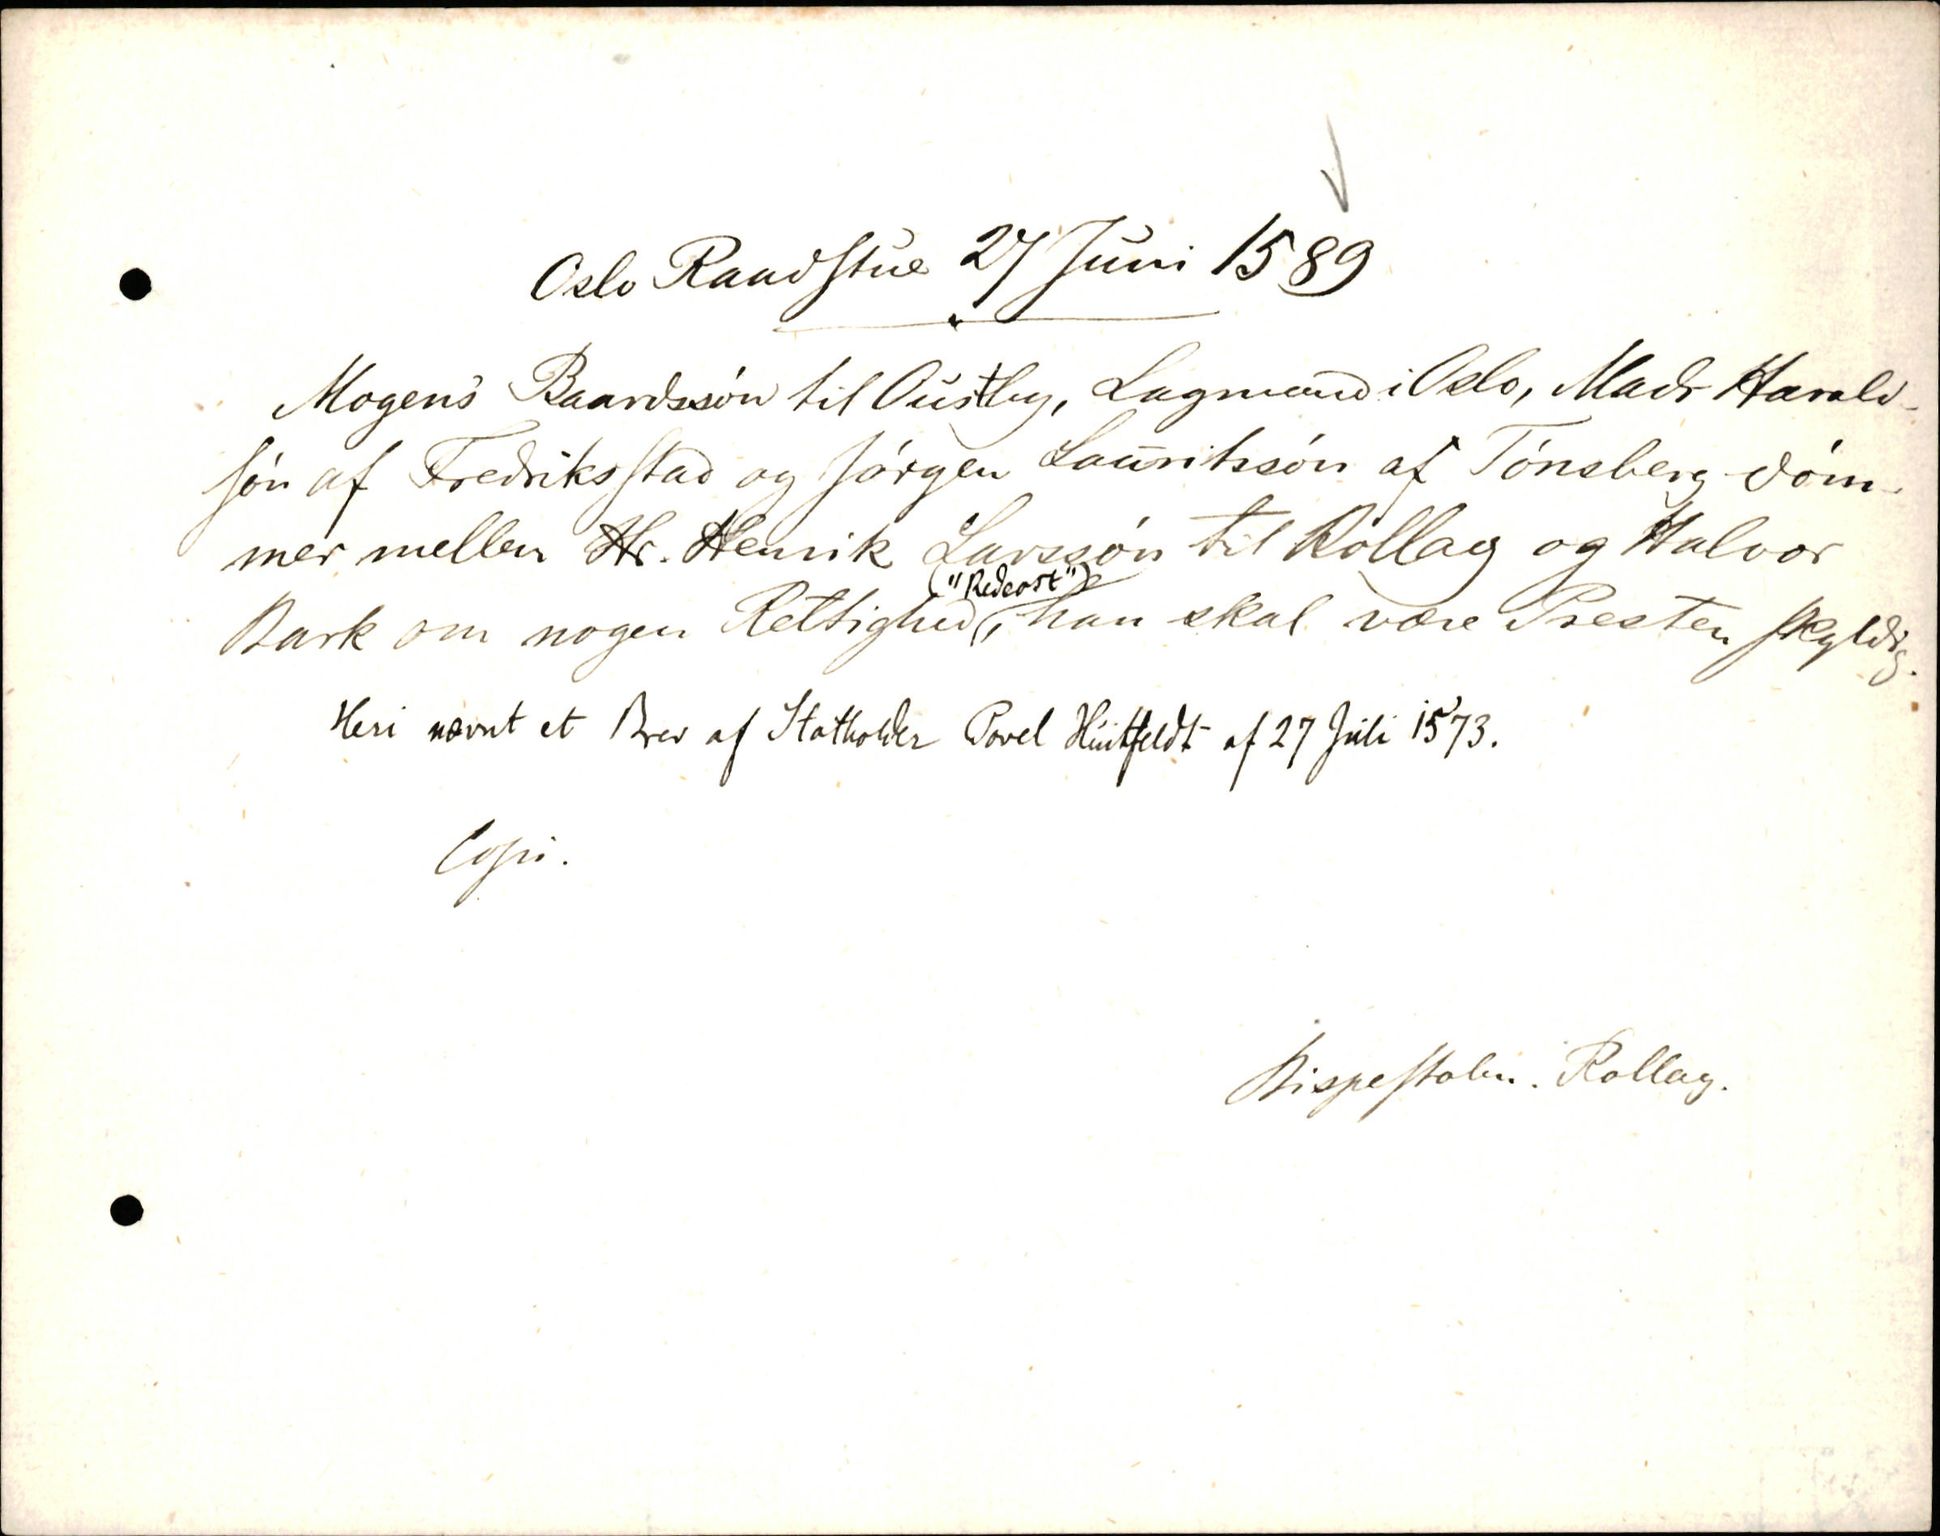 Oslo Raadstue 27 Juni 1589
Mogens Baardssön til Oustby, Lagmand i Oslo, Mads Harald-
sön af Fredriksstad og Jörgen Lauritssön af Tönsberg döm-
mer mellem Hr. Henrik Larssön til Rollag og Halvor
("Redeost")
Bark om nogen Rettighed, han skal være Presten skyldig.
Heri nævnt et Brev af Statholder Povel Huitfeldt af 27 Juli 1573.
Copi.
Bispestolen. Rollag.